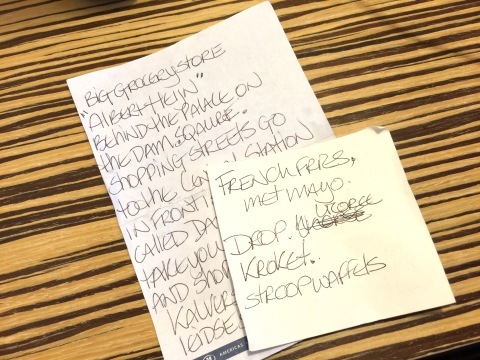 BIG GROCERY STORE
"ALBERT HEIJN"
BEHIND THE PALACE ON
the DAM SQAURE.
SHOPPING STREETS GO
TO the STATION
IN FRONT
CALLED DA
TAKE YOU
AND SHO
KALVER
LEIDSE
AMERICAS
FRENCH FRIES,
met MAYO.
DROP.
KROKET.
STROOPWAFFELS